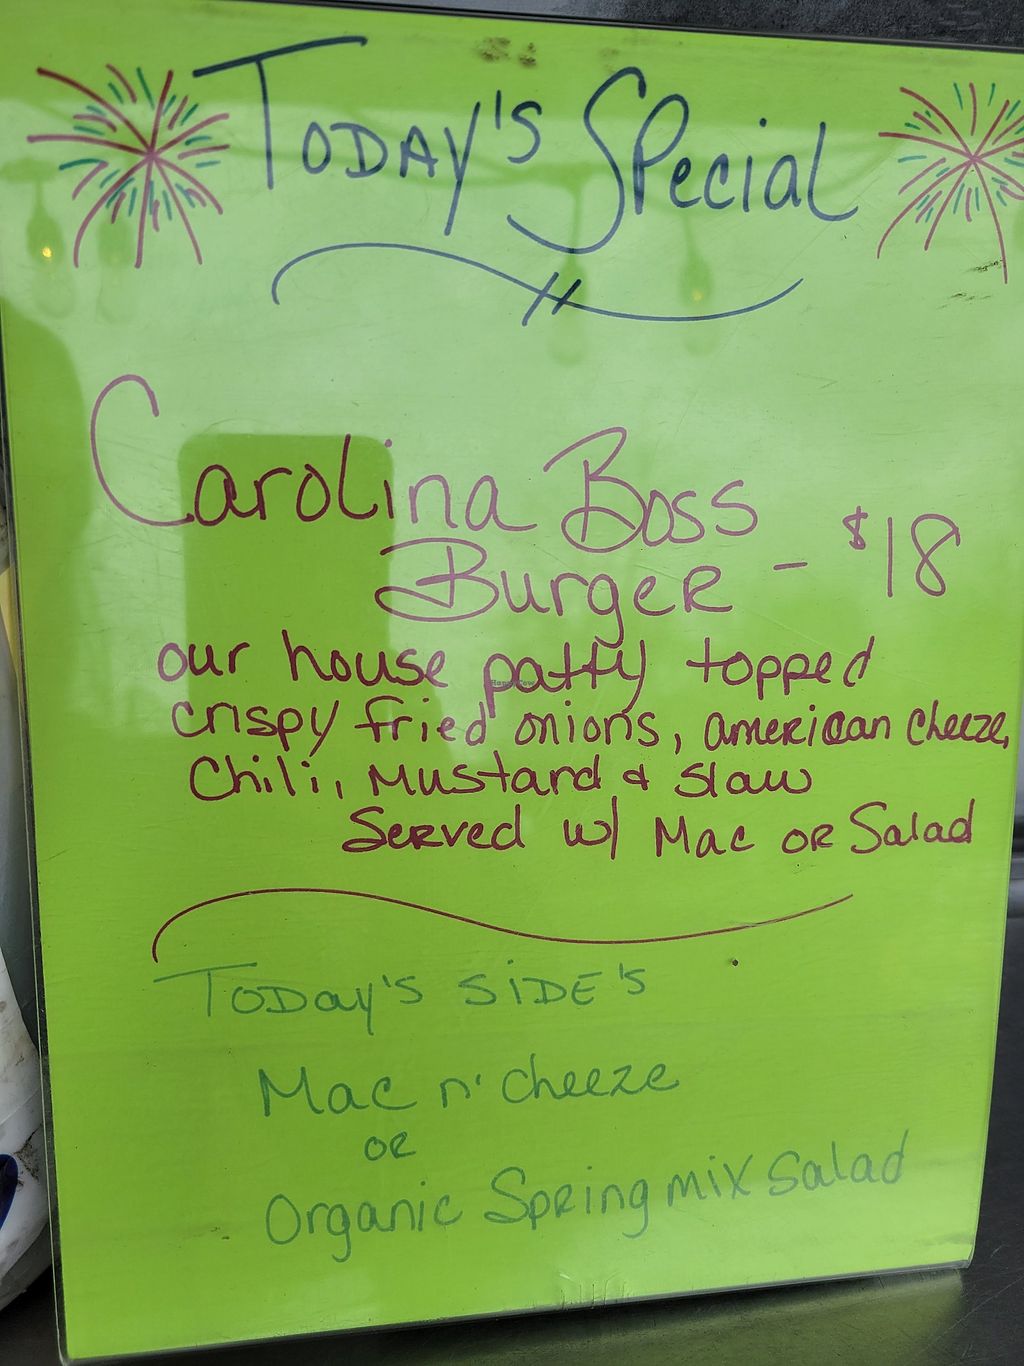 Today's Special
Carolina Boss
Burger - $18
our house patty topped
crispy fried onions, american cheeze,
Chili, Mustard & Slaw
Served w/ Mac or Salad
Today's SiDE's
Mac n' cheeze
or
Organic Spring mix salad
HappyCow